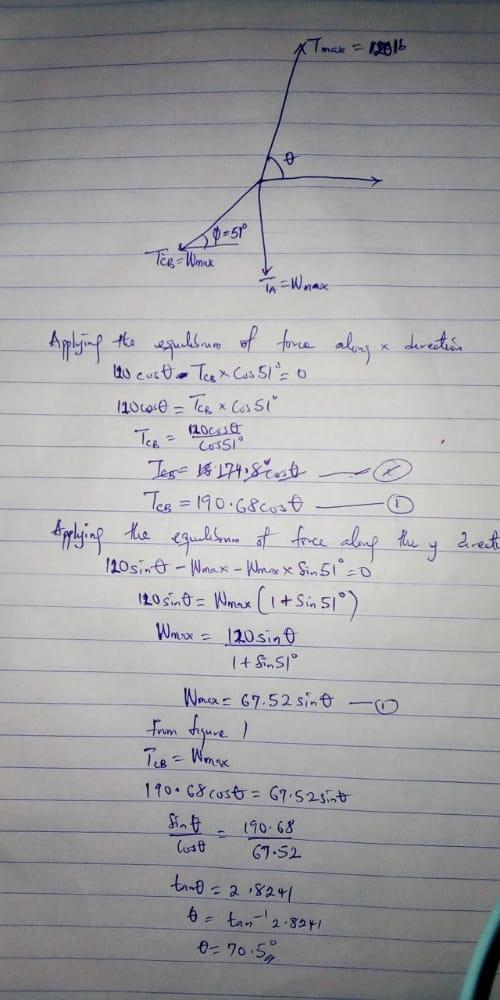 Tmax = 120lb
θ
φ=51°
TCB=Wmax
TA=Wmax
Applying the equilibrum of force along x direction
120cosθ - TCB × Cos51°=0
120cosθ = TCB × Cos51°
TCB = 120cosθ
Cos51°
TCB = 190.68cosθ — ①
Applying the equilibrum of force along the y directi
120sinθ - Wmax - Wmax × Sin51°=0
120sinθ = Wmax (1+Sin51°)
Wmax = 120sinθ
1+Sin51°
Wmax = 67.52sinθ — ①
From figure 1
TCB = Wmax
190.68cosθ = 67.52sinθ
Sinθ = 190.68
Cosθ 67.52
tanθ = 2.8241
θ = tan⁻¹ 2.8241
θ = 70.5°